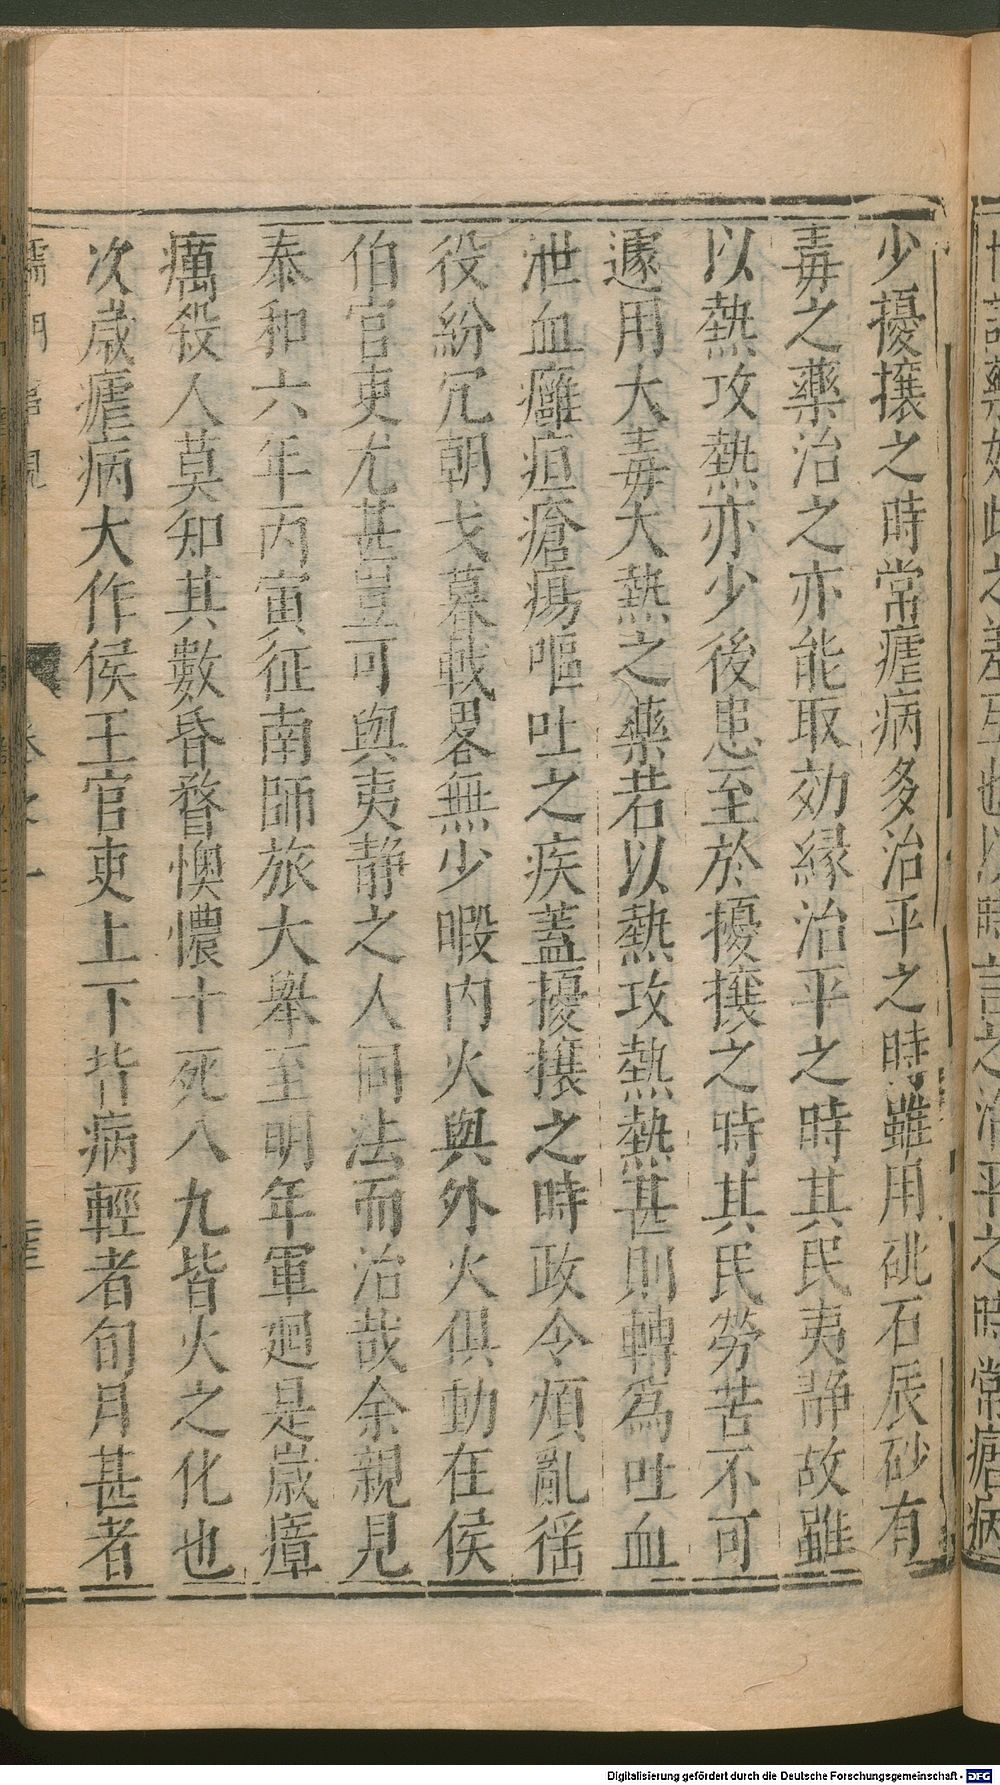 少擾攘之時常瘧病多治平之時雖用砒石辰砂有
毒之藥治之亦能取効緣治平之時其民夷静故雖
以熱攻熱亦少後患至於擾攘之時其民勞苦不可
遽用大毒大熱之藥若以熱攻熱熱甚則轉為吐血
泄血癰疽瘡瘍嘔吐之疾蓋擾攘之時政令煩亂徭
役紛冗朝戈暮戟畧無少暇内火與外火俱動在侯
伯官吏尤甚豈可與夷静之人同法而治哉余親見
泰和六年丙寅征南師旅大舉至明年軍廻是歲瘴
癘殺人莫知其數昏瞀懊憹十死八九皆火之化也
次歲瘧病大作侯王官吏上下皆病輕者旬月甚者
Digitalisierung gefördert durch die Deutsche Forschungsgemeinschaft - DFG